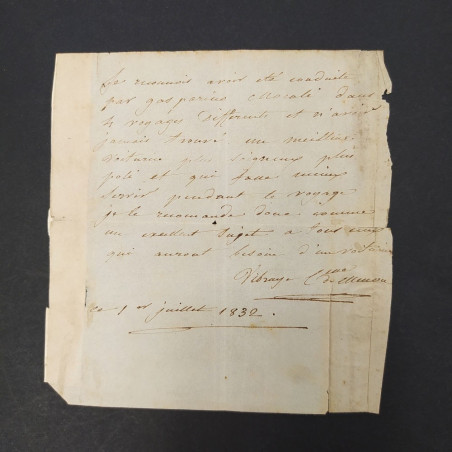 Je reconnois avoir été conduite
par gasparino Mocale dans
4 voyages Differents et n'avoir
jamais trouvé un meilleur
voiturin plus soigneux plus
poli et qui fasse mieux
servir pendant le voyage
je le recomande donc comme
un excellent Sujet a tous ceux
qui auront besoin d'un voiturin
D'ibraye
ce 1er juillet 1832.